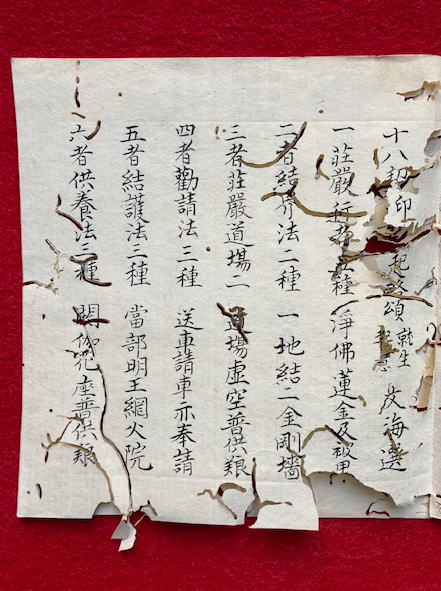 十八契印起略頌 就生起意 友海選
一莊嚴行者五種 淨佛蓮金及被甲
二者結界法二種 一地結二金剛墻
三者莊嚴道場二 道場虛空普供
四者勸請法三種 送車請車亦奉請
五者結護法三種 當部明王網火院
六者供養法三種 閼伽花座普供